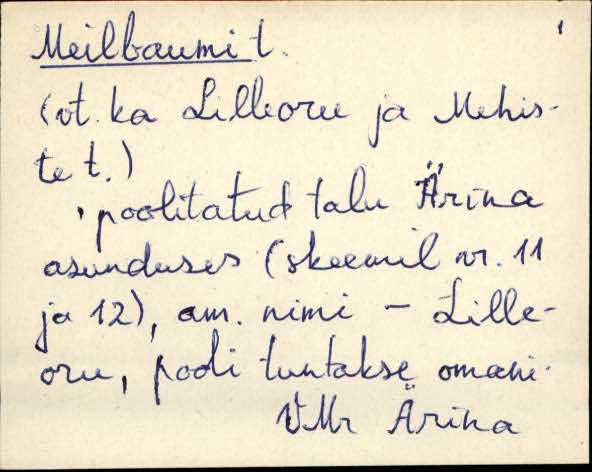 Meilbaumi t.
(vt. ka Lilleoru ja Mehis-
te t.)
poolitatud talu Ärina
asunduses (skeemil nr. 11
ja 12), am. nimi - Lille-
oru, pooli tuntakse omani-
VMr Ärina